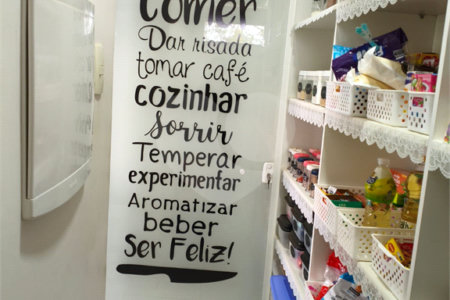 comer
Dar risada
tomar café
cozinhar
Sorrir
Temperar
experimentar
Aromatizar
beber
Ser Feliz!